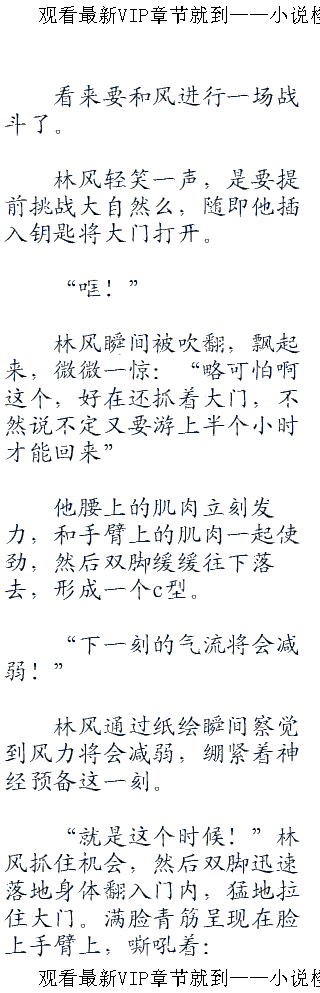 观看最新VIP章节就到——小说
看来要和风进行一场战
斗了。
林风轻笑一声，是要提
前挑战大自然么，随即他插
入钥匙将大门打开。
“哐！”
林风瞬间被吹翻，飘起
来，微微一惊：“略可怕啊
这个，好在还抓着大门，不
然说不定又要游上半个小时
才能回来”
他腰上的肌肉立刻发
力，和手臂上的肌肉一起使
劲，然后双脚缓缓往下落
去，形成一个c型。
“下一刻的气流将会减
弱！”
林风通过纸绘瞬间察觉
到风力将会减弱，绷紧着神
经预备这一刻。
“就是这个时候！”林
风抓住机会，然后双脚迅速
落地身体翻入门内，猛地拉
住大门。满脸青筋呈现在脸
上手臂上，嘶吼着：
观看最新VIP章节就到——小说